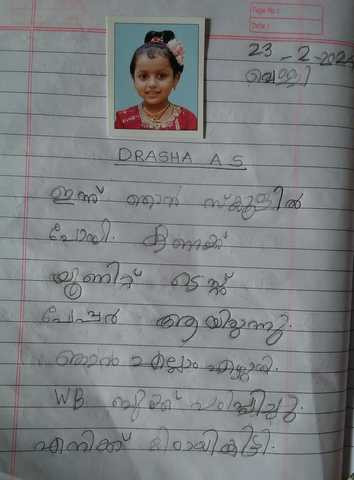 Page No:
Date:
23-2-2024
വെള്ളി
DRASHA A S
ഇന്ന് ഞാൻ സ്കൂളിൽ
പോയി.
യൂണിറ്റ് ടെസ്റ്റ്
പേപ്പർ ആയിരുന്നു.
ഞാൻ എല്ലാം എഴുതി.
WB ബുക്ക് പഠിപ്പിച്ചു.
എനിക്ക് മിഠായികിട്ടി.